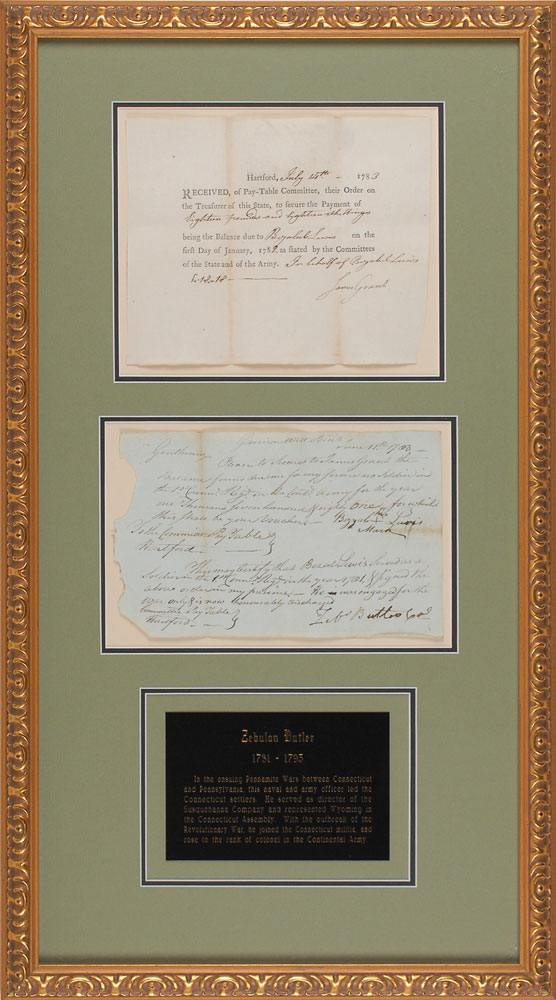 Hartford, July 14th - 1783
RECEIVED, of Pay-Table Committee, their Order on
the Treasurer of this State, to secure the Payment of
Eighteen pounds and Eighteen shillings
being the Balance due to Bezaleel Lewis on the
first Day of January, 1782, as stated by the Committees
of the State and of the Army. In behalf of Bezaleel Lewis
£18..18
James Grant
June 11th 1783
Gentlemen
Please to to James Grant the
due for my service as a Soldier in
the 1st Connt Regt in the Army for the year
one Thousand Seven hundred & eighty one, for which
this shall be your Voucher - Lewis
Mark
To the Committee Pay Table
Hartford
This may certify that Lewis Served as a
Soldier in the 1st Regt in the year 1781 & Signed the
above order in my presence - He was engaged for the
War only & is now honorably discharged
Committee Pay Table
Hartford
Butler
Zebulon Butler
1731 - 1795
In the ensuing Pennamite Wars between Connecticut
and Pennsylvania, this naval and army officer led the
Connecticut settlers. He served as director of the
Susquehanna Company and represented Wyoming in
the Connecticut Assembly. With the outbreak of the
Revolutionary War, he joined the Connecticut militia and
rose to the rank of colonel in the Continental Army.